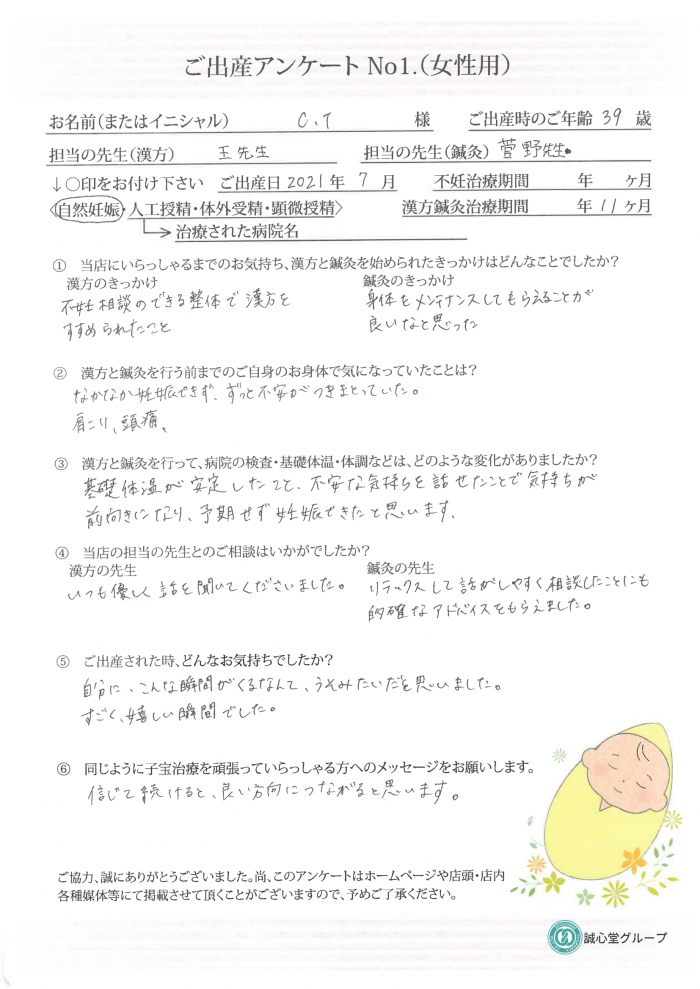 ご出産アンケート No1.(女性用)
お名前(またはイニシャル) C.T 様 ご出産時のご年齢 39 歳
担当の先生(漢方) 王先生 担当の先生(鍼灸) 菅野先生
↓○印をお付け下さい ご出産日 2021年 7 月 不妊治療期間 年 ヶ月
〈自然妊娠・人工授精・体外受精・顕微授精〉 漢方鍼灸治療期間 年 11ヶ月
治療された病院名
① 当店にいらっしゃるまでのお気持ち、漢方と鍼灸を始められたきっかけはどんなことでしたか?
漢方のきっかけ
不妊相談のできる整体で漢方を
すすめられたこと
鍼灸のきっかけ
身体をメンテナンスしてもらえることが
良いなと思った
② 漢方と鍼灸を行う前までのご自身のお身体で気になっていたことは?
なかなか妊娠できず、ずっと不安がつきまとっていた。
肩こり、頭痛、
③ 漢方と鍼灸を行って、病院の検査・基礎体温・体調などは、どのような変化がありましたか?
基礎体温が安定したこと、不安な気持ちを話せたことで気持ちが
前向きになり、予期せず妊娠できたと思います、
④ 当店の担当の先生とのご相談はいかがでしたか?
漢方の先生
いつも優しく話を聞いてくださいました。
鍼灸の先生
リラックスして話がしやすく相談したことにも
的確なアドバイスをもらえました。
⑤ ご出産された時、どんなお気持ちでしたか?
自分に、こんな瞬間がくるなんて、うそみたいだと思いました。
すごく、嬉しい瞬間でした。
⑥ 同じように子宝治療を頑張っていらっしゃる方へのメッセージをお願いします。
信じて続けると、良い方向につながると思います。
ご協力、誠にありがとうございました。尚、このアンケートはホームページや店頭・店内
各種媒体等にて掲載させて頂くことがございますので、予めご了承ください。
誠心堂グループ